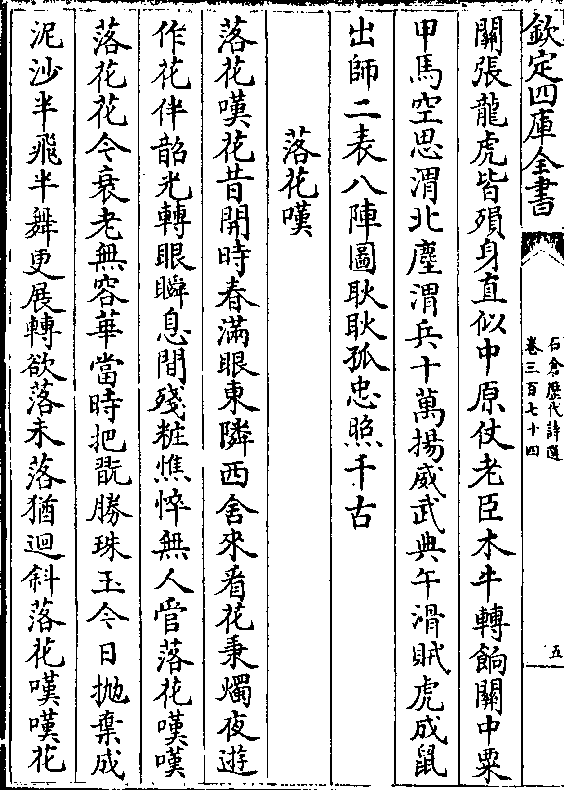 欽定四庫全書
石倉歷代詩選
卷三百七十四
五
關張龍虎皆殞身直似中原仗老臣木牛轉餉關中粟
甲馬空思渭北塵渭兵十萬揚威武典午滑賊虎成鼠
出師二表八陣圖耿耿孤忠照千古
落花嘆
落花嘆花昔開時春滿眼東隣西舍來看花秉燭夜遊
作花伴韶光轉眼瞬息間殘粧憔悴無人管落花嘆嘆
落花花今衰老無容華當時把翫勝珠玉今日拋棄成
泥沙半飛半舞更展轉欲落未落猶迴斜落花嘆嘆花